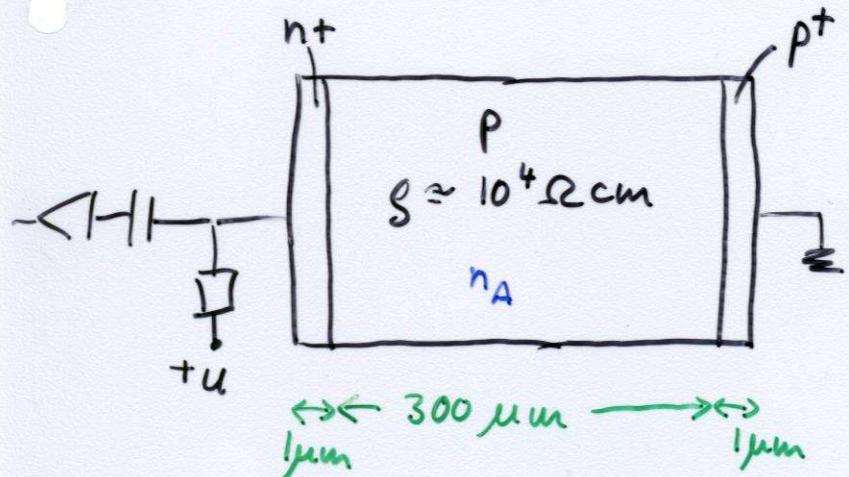 n+
p+
p
ρ ≃ 10⁴ Ω cm
n_A
+u
300 μm
1μm
1μm